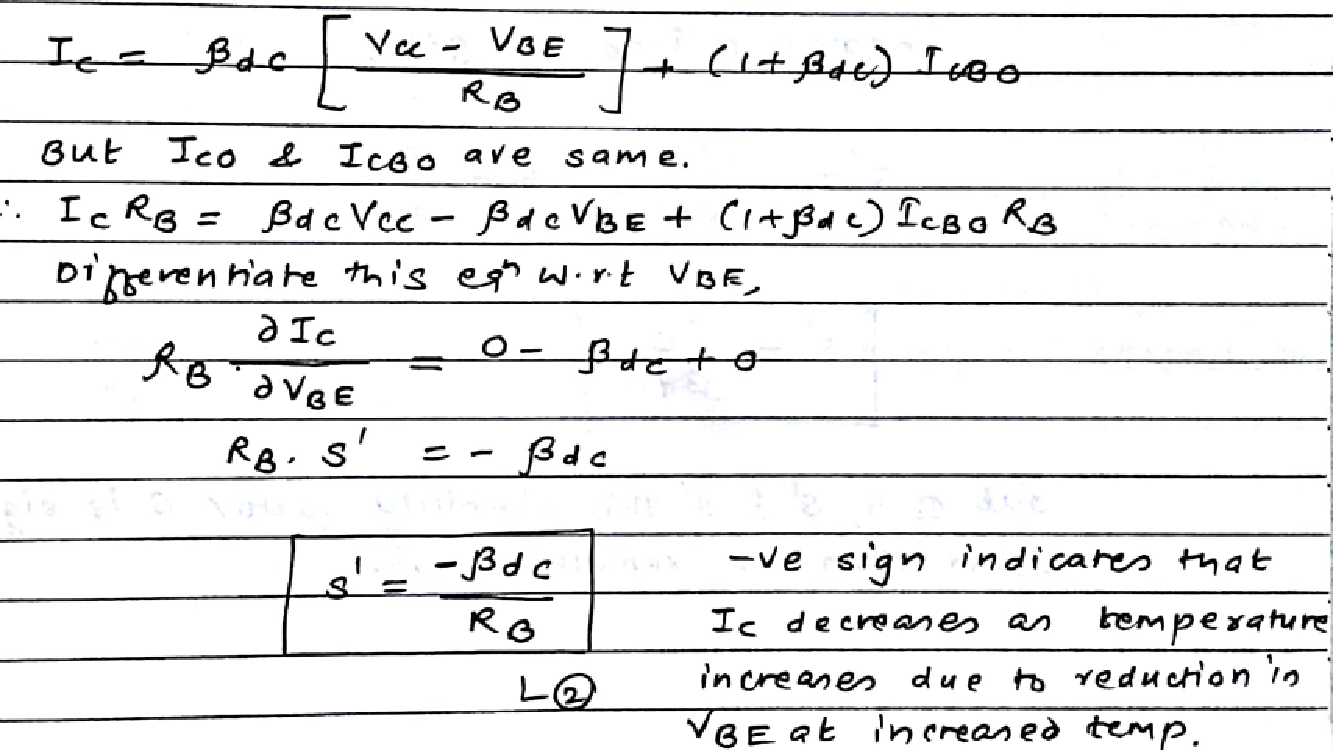 Ic = βdc [ Vcc - VBE / RB ] + (1 + βdc) ICBO
But Ico & ICBO are same.
∴ Ic RB = βdc Vcc - βdc VBE + (1+βdc) ICBO RB
Differentiate this eqn w.r.t VBE,
RB · ∂Ic / ∂VBE = 0 - βdc + 0
RB. S' = - βdc
S' = -βdc / RB
-ve sign indicates that
Ic decreases as temperature
increases due to reduction in
VBE at increased temp.
L②